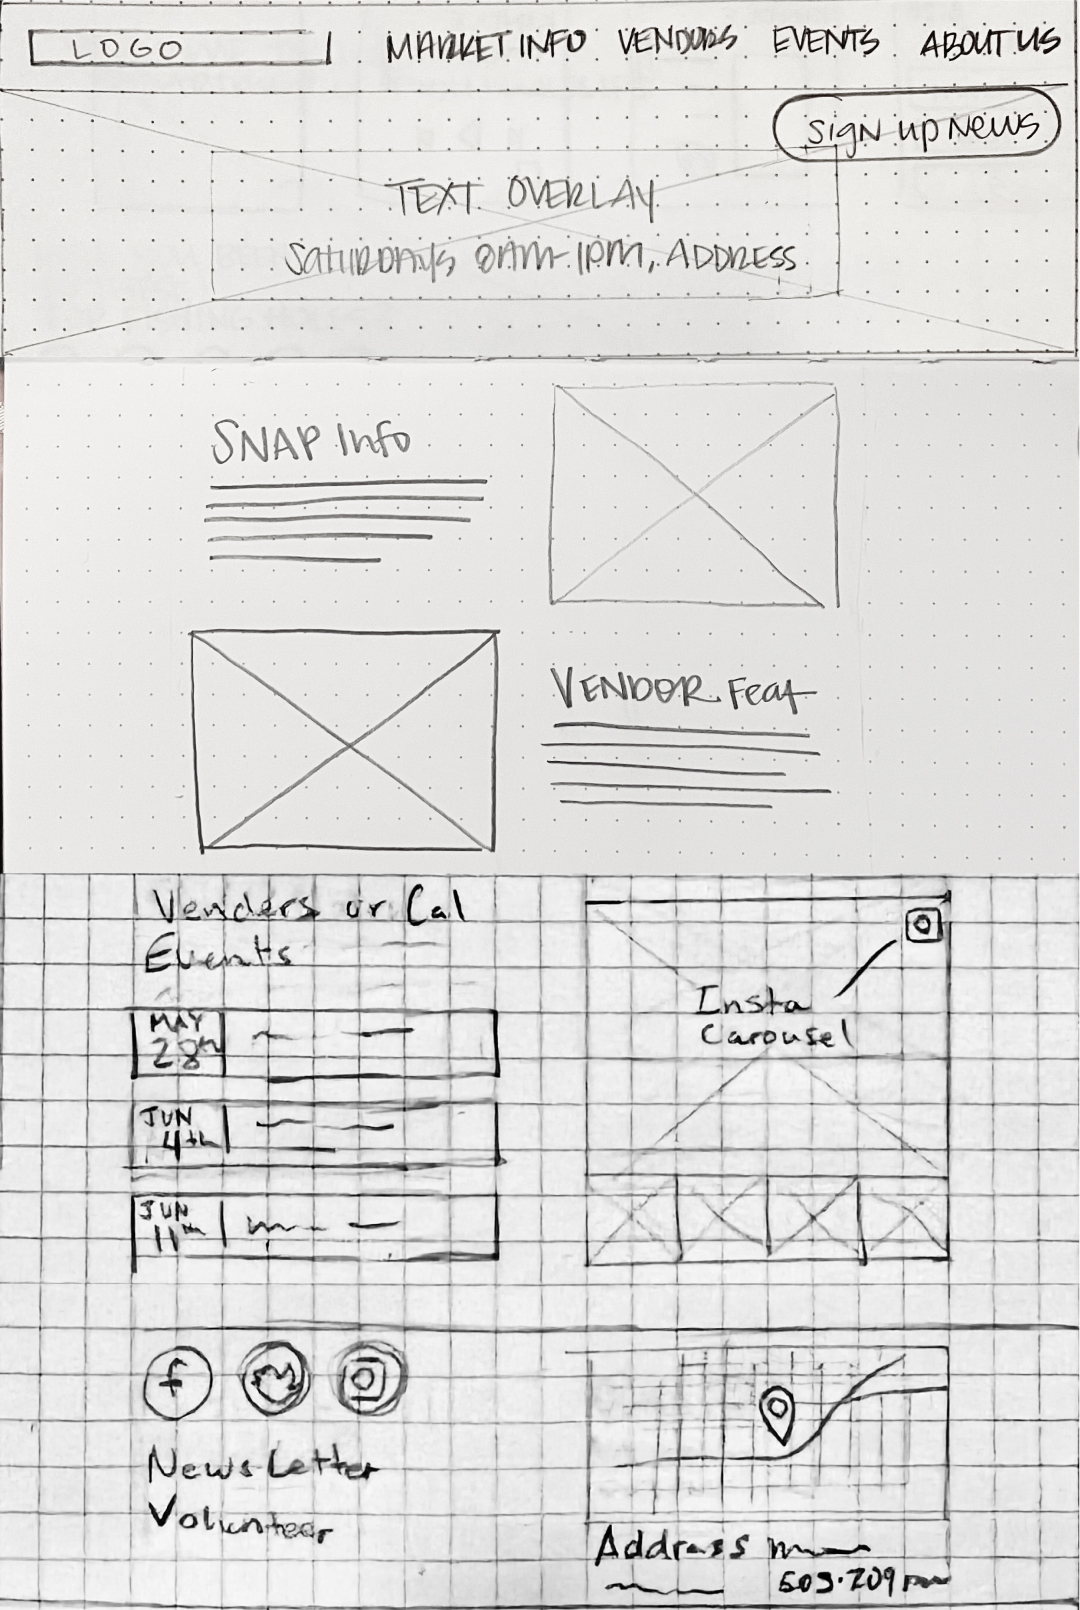 LOGO
MARKET INFO VENDORS EVENTS ABOUT US
Sign up News
TEXT OVERLAY
SATURDAYS 8AM-1PM, ADDRESS
SNAP Info
VENDOR Feat
Venders or Cal
Events
MAY
28th
JUN
4th
JUN
11th
Insta
Carousel
f
NewsLetter
Volunteer
Address
503.209